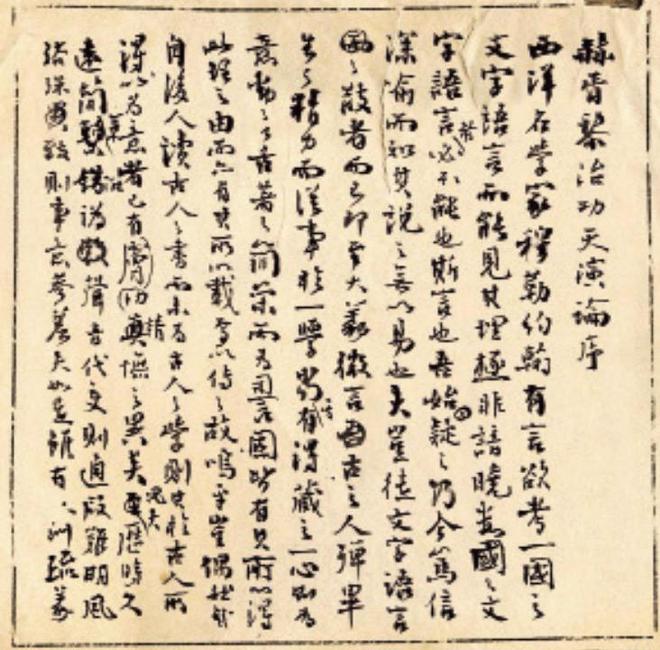 赫胥黎治功天演論序
西洋名學家穆勒約翰有言欲考一國之
文字語言而能見其理極非諳曉數國之文
字語言者必不能也斯言也吾始疑之乃今篤信
深喻而知其說之無以易也夫豈徒文字語言
之散者而已即至大義微言古之人殫畢
生之精力而從事於一學當有得藏之一心則為
意動之口舌著之簡策而為言固皆有其所以得
此理之由而亦有其所以載焉以傳之故嗚乎豈偶然哉
自後人讀古人之書而未為古人之學則其於古人所
得以為意者已有膚切精憮之異矣況歷時久
遠簡錯譌聲音代變則通叚難明風
俗殊則事意參差夫如是雖有訓疏義